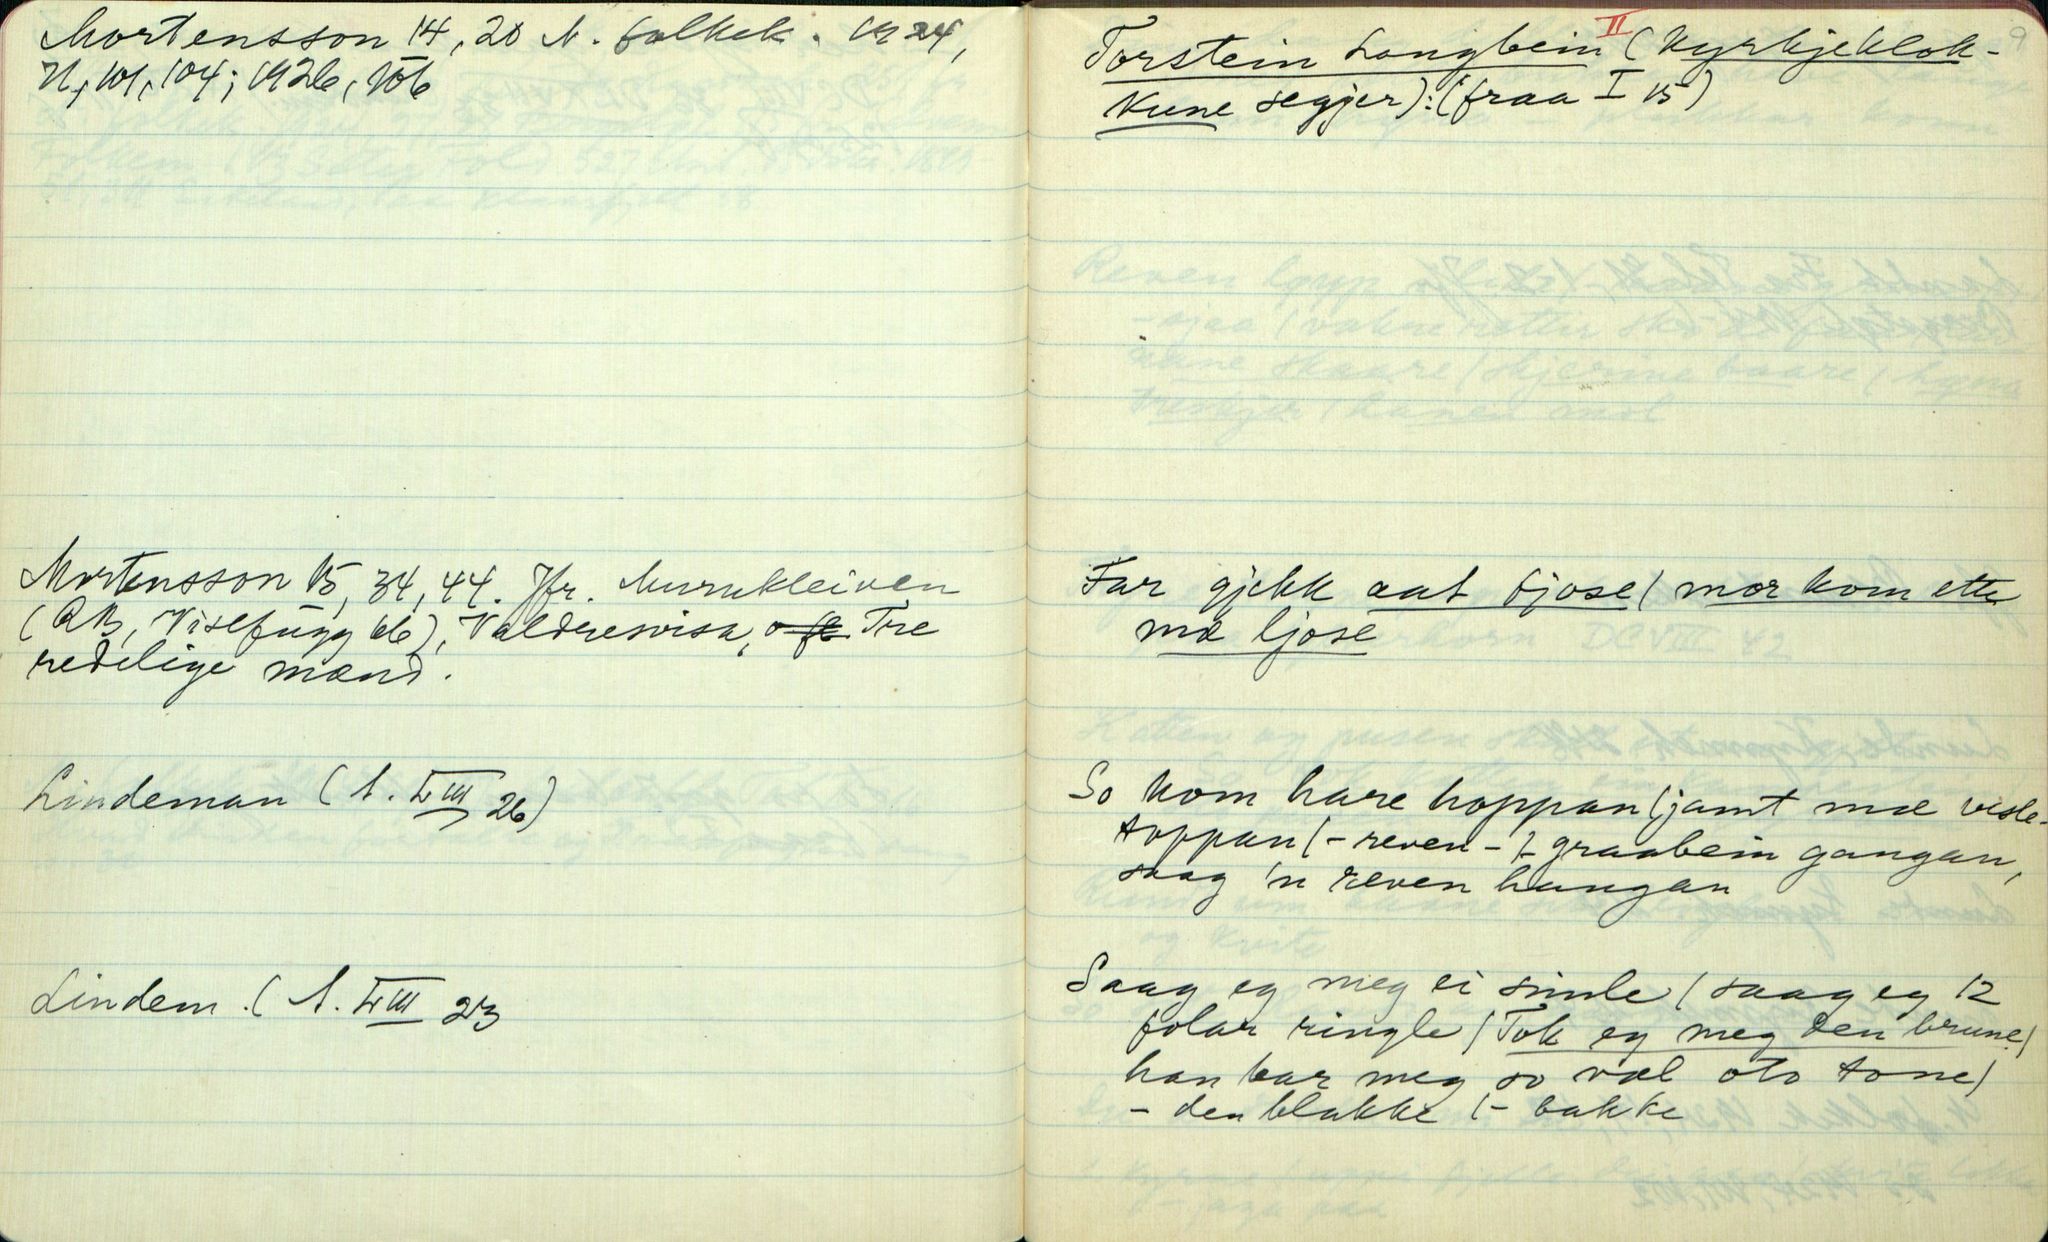 Mortensson 14, 20 N. folkek. 1924,
71, 101, 104; 1926, 106
Mortensson 15, 34, 44. Jfr. Murukleiven
Valdresvisa, Tre
redelige mænd.
Lindeman (A. L III 26)
Lindem. (A. L III 23
9
Torstein Langbein II (Kyrkjeklok-
kune segjer): (fraa I 15)
Far gjekk aat fjose / mor kom ette
mæ ljose
So kom hare hoppan / jamt mæ visle-
toppan / - reven - / - graabein gangan,
saag 'n reven hangan
Saag eg meg ei simle / saag eg 12
folar ringle / Tok eg meg den brune /
han bar meg so væl oto tone /
- den blakke / - bakke